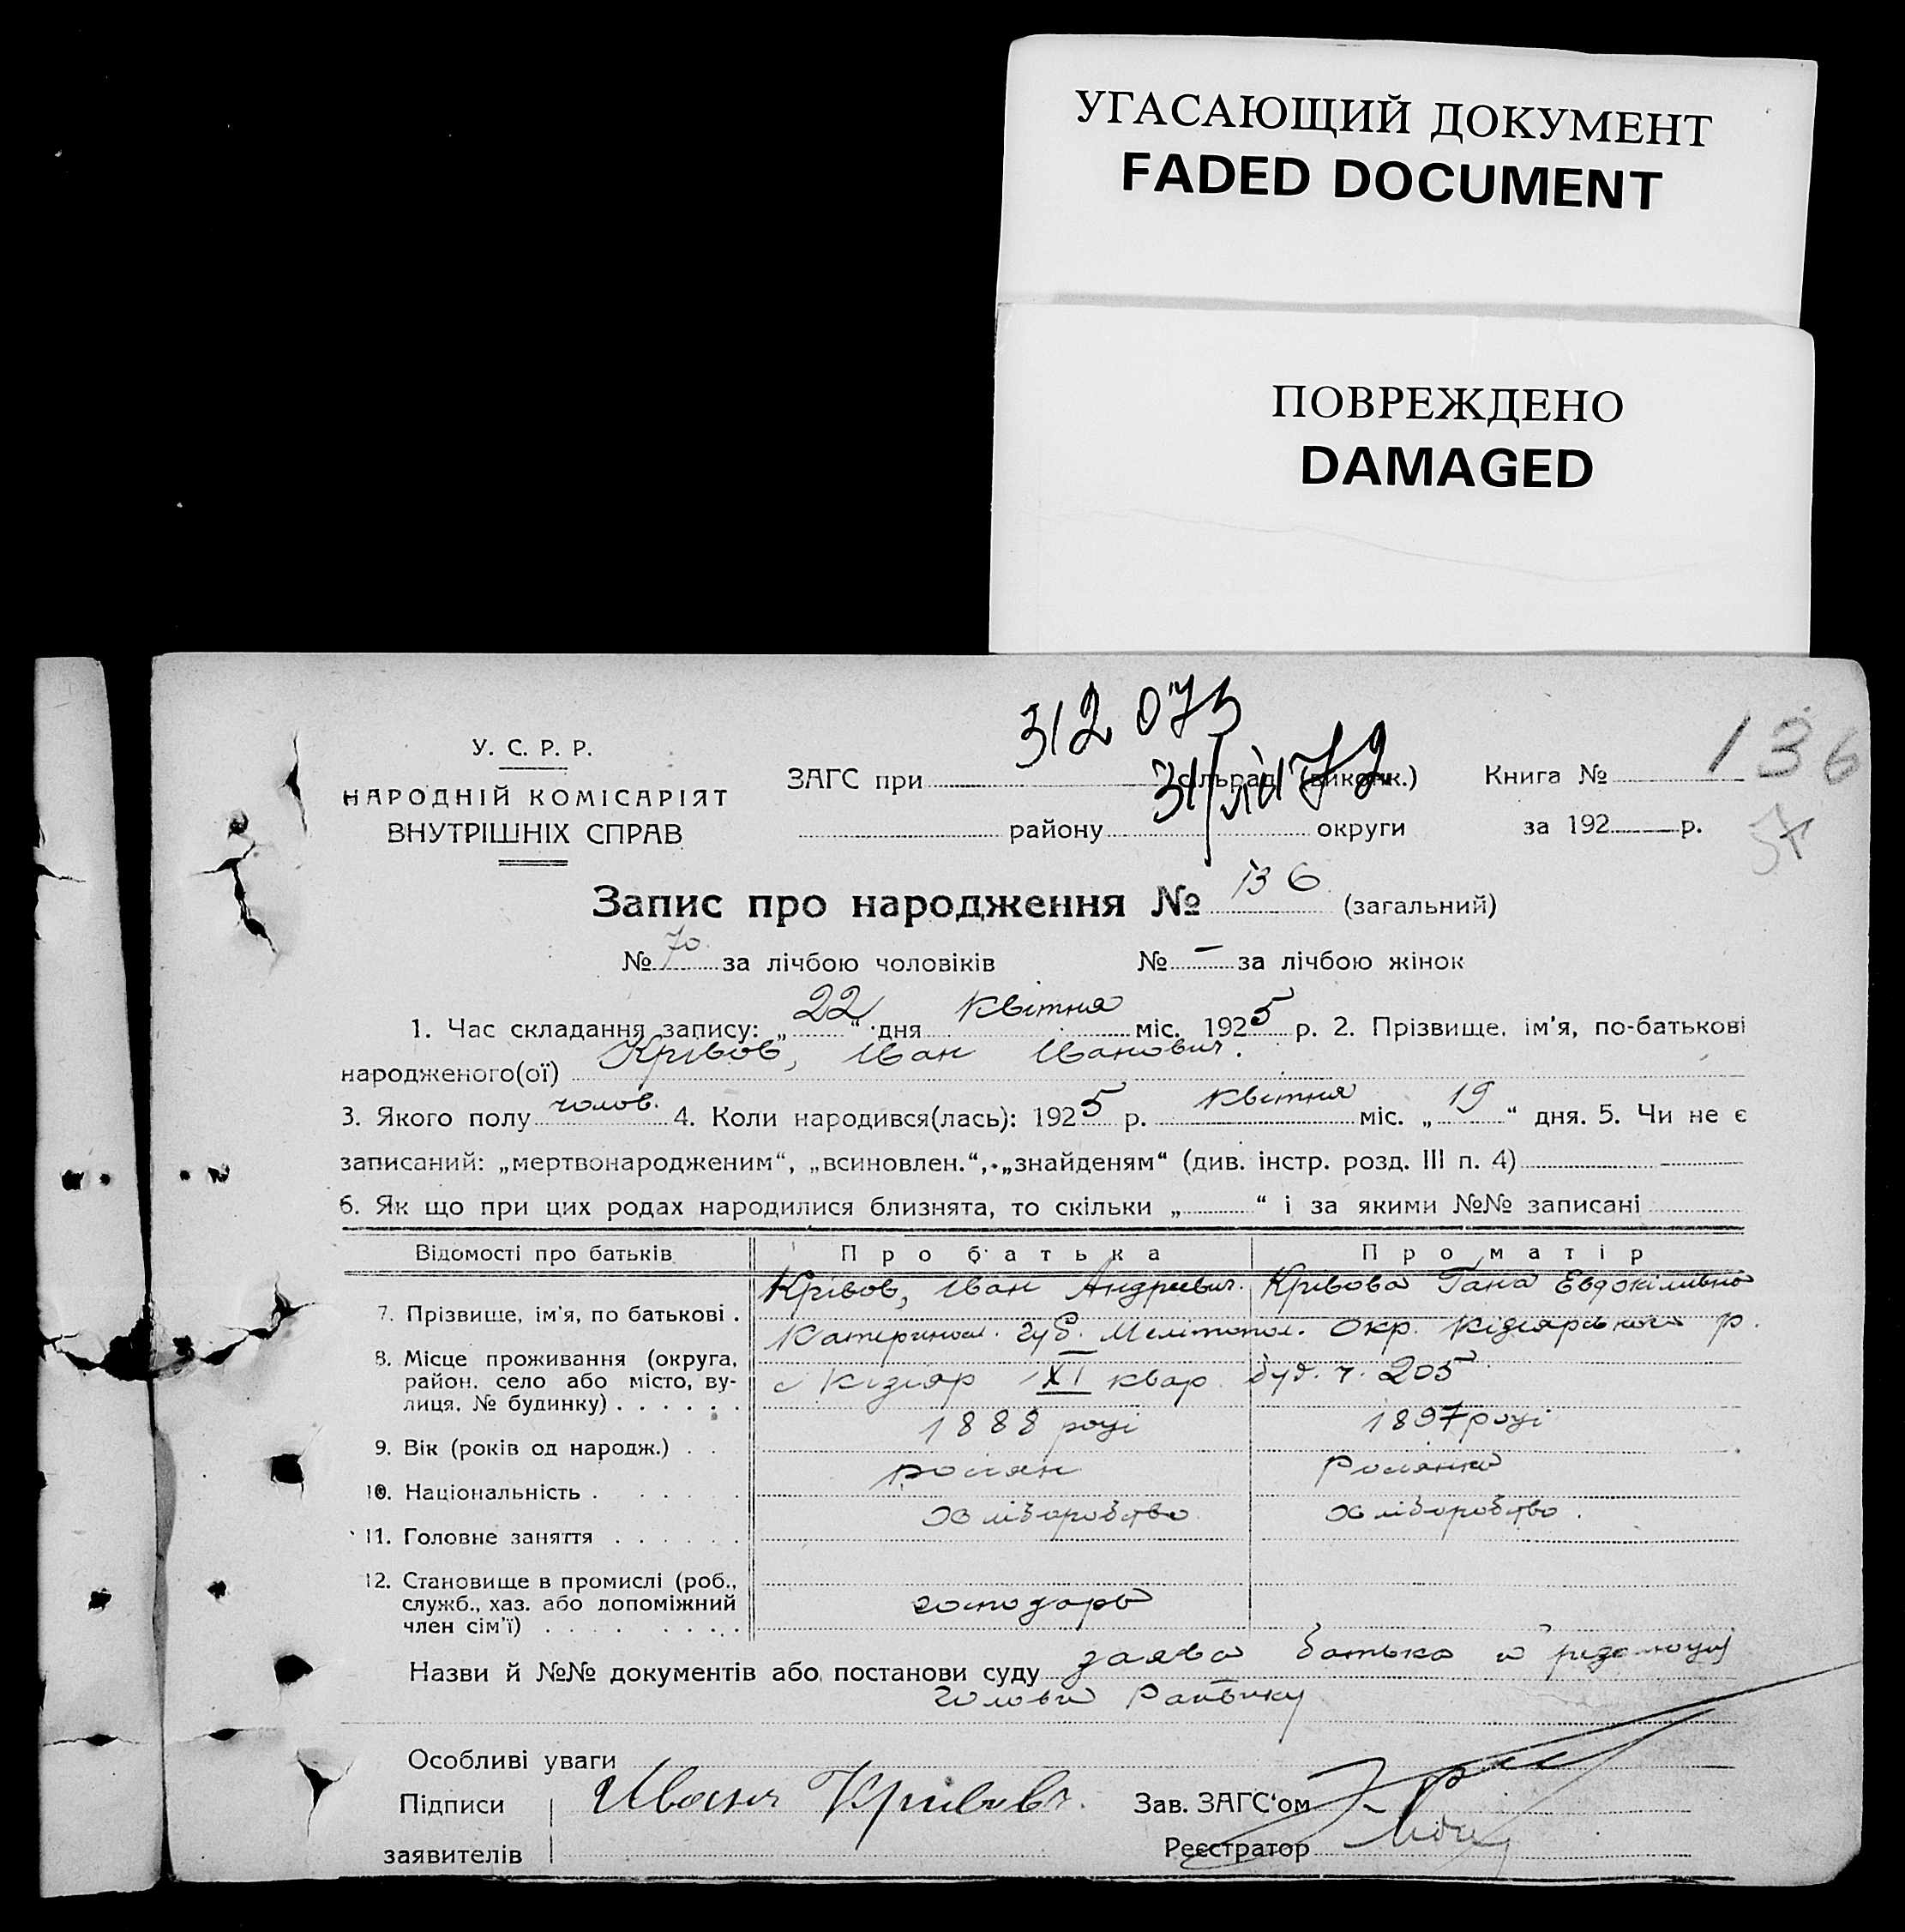 УГАСАЮЩИЙ ДОКУМЕНТ
FADED DOCUMENT
ПОВРЕЖДЕНО
DAMAGED
312 073
136
У. С. Р. Р.
НАРОДНІЙ КОМІСАРІЯТ
ВНУТРІШНІХ СПРАВ
ЗАГС при сільраді (виконк.) Книга №
району округи за 192 р.
Запис про народження № 136 (загальний)
№ 70 за лічбою чоловіків № – за лічбою жінок
1. Час складання запису: „22“ дня Квітня міс. 1925 р. 2. Прізвище, ім'я, по-батькові
народженого(ої) Крівов, Іван Іванович.
3. Якого полу чолов. 4. Коли народився(лась): 1925 р. Квітня міс. „19“ дня. 5. Чи не є
записаний: „мертвонародженим“, „всиновлен.“, „знайденям“ (див. інстр. розд. III п. 4)
6. Як що при цих родах народилися близнята, то скільки „ “ і за якими №№ записані
Відомості про батьків Про батька Про матір
7. Прізвище, ім'я, по батькові . Крівов, Іван Андреевич. Крівова Гана Евдокімивна
8. Місце проживання (округа, Катериносл. губ. Мелітопол. Окр. Кізіярського р.
район, село або місто, ву- с Кізіяр XI квар. буд. ч. 205
лиця, № будинку) . . . . . .
9. Вік (років од народж.) . . 1888 році 1897 році
10. Національність . . . . . . росіян Росіянка
11. Головне заняття . . . . . . Хліборобство Хліборобство.
12. Становище в промислі (роб.,
служб., хаз. або допоміжний господарь
член сім'ї) . . . . . . . .
Назви й №№ документів або постанови суду заява батька й резолюції
Голови Райвику
Особливі уваги
Підписи Иванъ Кривовъ. Зав. ЗАГС'ом
заявителів Реєстратор